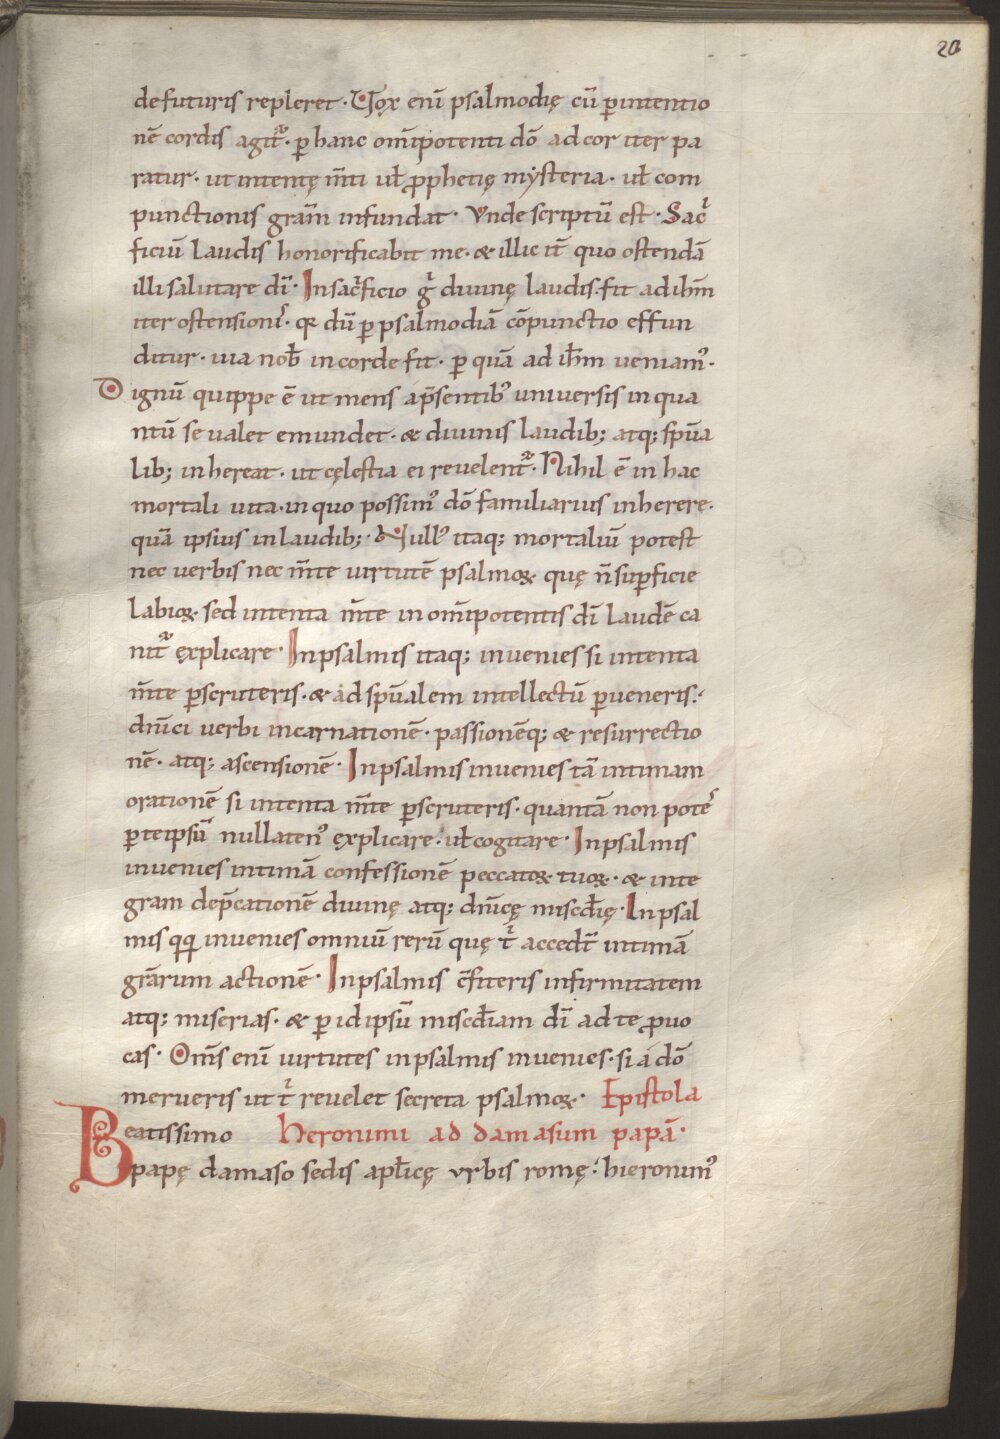 20
de futuris repleret · Vox eni̅ psalmodię cu̅ p̲ intentio
ne̅ cordis agit᷑ · p̲ hanc om̅ipotenti do̅ ad cor iter pa
ratur · ut intentę m̅ti ul̅ p̲phetię mẏsteria · ul̅ com
punctionis gr̅am infundat · Vnde scriptu̅ est · Sacͥ
ficiu̅ laudis honorificabit me · & illic it̅ quo ostenda̅
illi salutare di̅ · In sacͥficio gͥ diuinę laudis · fit ad ih̅m
iter ostensionıͤ · qꝛ du̅ p̲ psalmodia̅ co̅punctio effun
ditur · uia nob̅ in corde fit · p̲ qua̅ ad ih̅m ueniam᷒ ·
Dignu̅ quippe e̅ ut mens ap̅sentib᷒ uniuersis in qua
ntu̅ se ualet emundet · & diuinis laudib; atq; sp̅ua
lib; inhereat · ut cęlestia ei reuelent᷑ · Nihil e̅ in hac
mortali uita · in quo possim᷒ do̅ familiarius inherere ·
qua̅ ipsius in laudib; · Null᷒ itaq; mortaliu̅ potest
nec uerbis nec m̅te uirtute̅ psalmoꝝ quę n̅ sup̲ficie
labioꝝ · sed intenta m̅te in om̅ipotentis di̅ laude̅ ca
nit᷑ ęxplicare · In psalmis itaq; inuenies si intenta
m̅te p̲scruteris · & ad sp̅ualem intellectu̅ p̲ueneris ·
dn̅ici uerbi incarnatione̅ · passione̅q; & resurrectio
ne̅ · atq; ascensione̅ · In psalmis inuenies ta̅ intimam
oratione̅ si intenta m̅te p̲scruteris · quanta̅ non poteͤ
p̲ teipsu̅ nullaten᷒ ęxplicare · ul̅ cogitare · In psalmis
inuenies intima̅ confessione̅ peccatoꝝ tuoꝝ · & inte
gram dep̅catione̅ diuinę atq; dn̅icę misc̅dię · In psal
mis qͥqͥ inuenies omniu̅ reru̅ quę tͥ accedt̅ intima̅
gr̅arum actione̅ · In psalmis c̅fiteris infirmitatem
atq; miserias · & p̲ id ipsu̅ misc̅diam di̅ ad te p̲uo
cas · Om̅s eni̅ uirtutes in psalmis inuenies · si a do̅
merueris ut tͥ reuelet secreta psalmoꝝ · Epistola
Beatissimo heronimi ad damasum papa̅ ·
papę damaso sedis apl̅icę vrbis romę · hieronim᷒